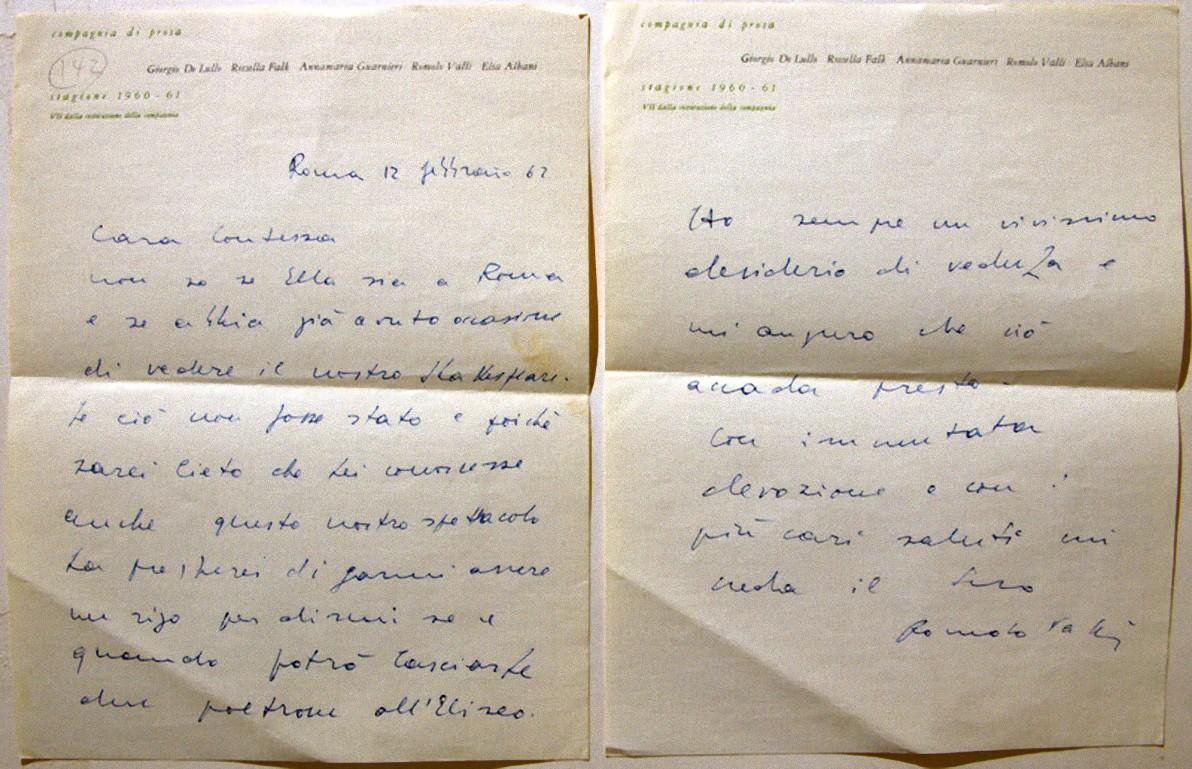 compagnia di prosa
142
Giorgio De Lullo Rossella Falk Annamaria Guarnieri Romolo Valli Elsa Albani
stagione 1960-61
VII dalla costituzione della compagnia
Roma 12 febbraio 62
Cara Contessa
non so se Ella sia a Roma
e se abbia già avuto occasione
di vedere il nostro Shakespeare.
Se ciò non fosse stato e poiché
sarei lieto che Lei conoscesse
anche questo nostro spettacolo
La pregherei di farmi avere
un rigo per dirmi se e
quando potrò lasciarLe
due poltrone all'Eliseo.
compagnia di prosa
Giorgio De Lullo Rossella Falk Annamaria Guarnieri Romolo Valli Elsa Albani
stagione 1960-61
VII dalla costituzione della compagnia
Ho sempre un vivissimo
desiderio di vederLa e
mi auguro che ciò
accada presto.
Con immutata
devozione e con i
più cari saluti mi
creda il Suo
Romolo Valli